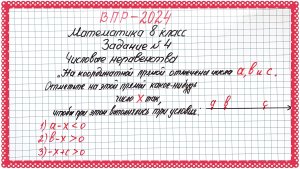 ВПР-2024
Математика 8 класс
Задание №4
Числовые неравенства
"На координатной прямой отмечены числа a, b и c.
Отметьте на этой прямой какое-нибудь
число x так,
чтобы при этом выполнялись три условия:
a b c
1) a-x<0
2) b-x>0
3) -x+c>0